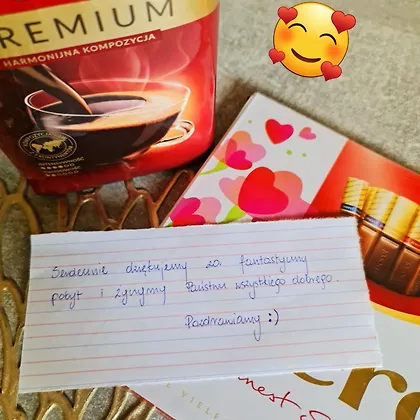 REMIUM
HARMONIJNA KOMPOZYCJA
INTENSYWNOŚĆ
Serdecznie dziękujemy za fantastyczny
pobyt i życzymy Państwu wszystkiego dobrego.
Pozdrawiamy :)